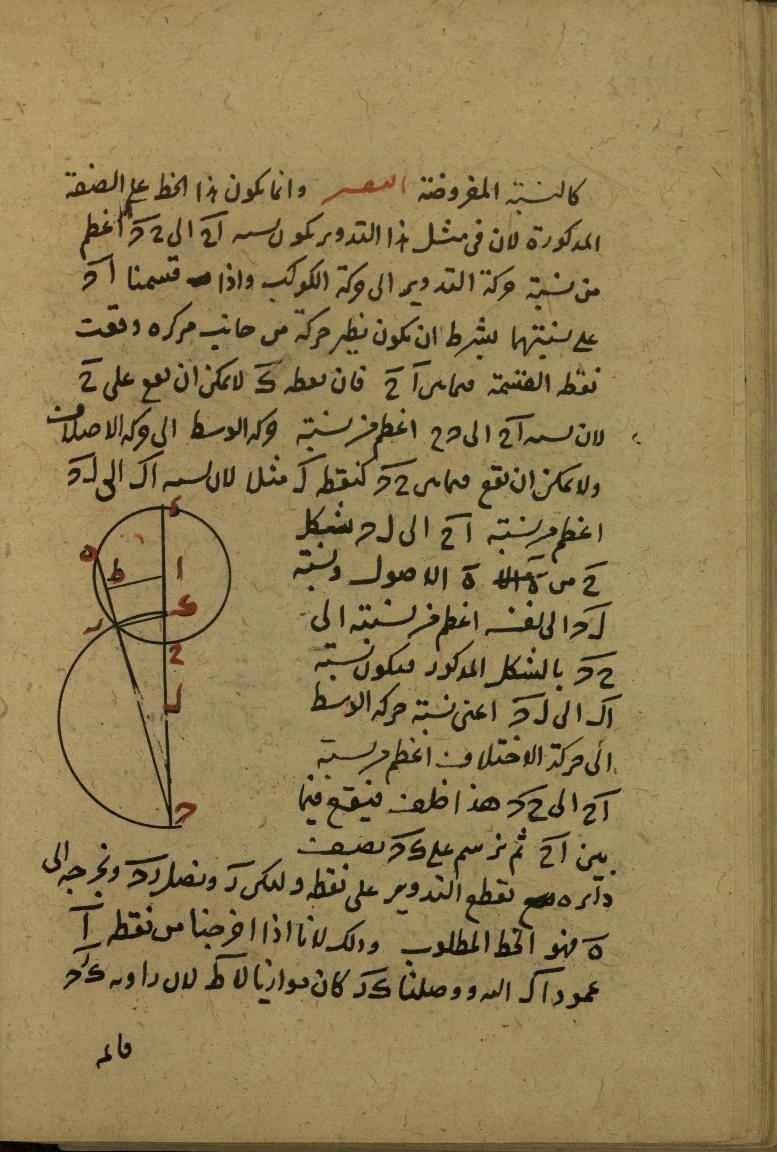 كالنسبة المفروضة التفسير وانما يكون هذا الخط على الصفة
المذكورة لان فى مثل هذا التدوير يكون نسبه اح الى ح د اعظم
من نسبة حركة التدوير الى حركة الكوكب واذا قسمنا ا د
على نسبتهما بشرط ان يكون نظير حركة من جانب مركزه وقعت
نقطه القسمة فيما بين ا ح فان نقطه ك لا يمكن ان تقع على ح
لان نسبه اح الى ح د اعظم من نسبة حركه الوسط الى حركه الاختلاف
ولا يمكن ان تقع فيما بين ح د كنقطه ل مثلا لان نسبه ا ل الى ل د
اعظم من نسبة ا ح الى ل د بشكل
ح من ه الاصول ونسبة
ل د الى نفسه اعظم من نسبته الى
ح د بالشكل المذكور فيكون نسبة
ا ل الى ل د اعنى نسبة حركه الوسط
الى حركة الاختلاف اعظم من نسبة
اح الى ح د هذا خلف فيقع فيما
بين اح ثم نرسم على ك د نصف
دائره تقطع التدوير على نقطه وليكن ر ونصل ر د ونخرجه الى
ه فهو الخط المطلوب وذلك لانا اذا اخرجنا من نقطه ا
عمود ا ط اليه ووصلنا ك ر كان موازيا لا ط لان زاويه ك ر د
ه
ط
ا
ك
ر
ح
ل
د
قائمه